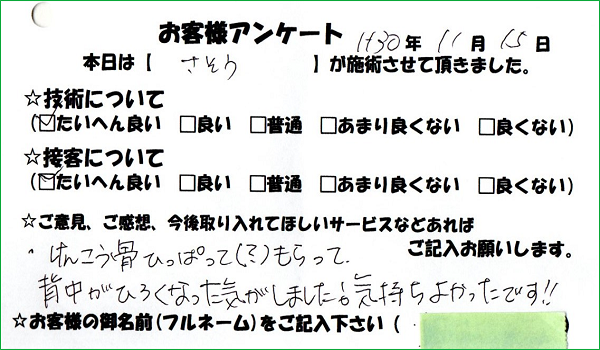 お客様アンケート H30年 11月 15日
本日は【 さそう 】が施術させて頂きました。
☆技術について
(☑たいへん良い □良い □普通 □あまり良くない □良くない)
☆接客について
(☑たいへん良い □良い □普通 □あまり良くない □良くない)
☆ご意見、ご感想、今後取り入れてほしいサービスなどあれば
ご記入お願いします。
・けんこう骨ひっぱって(?)もらって、
背中がひろくなった気がしました。気持ちよかったです!!
☆お客様の御名前(フルネーム)をご記入下さい (